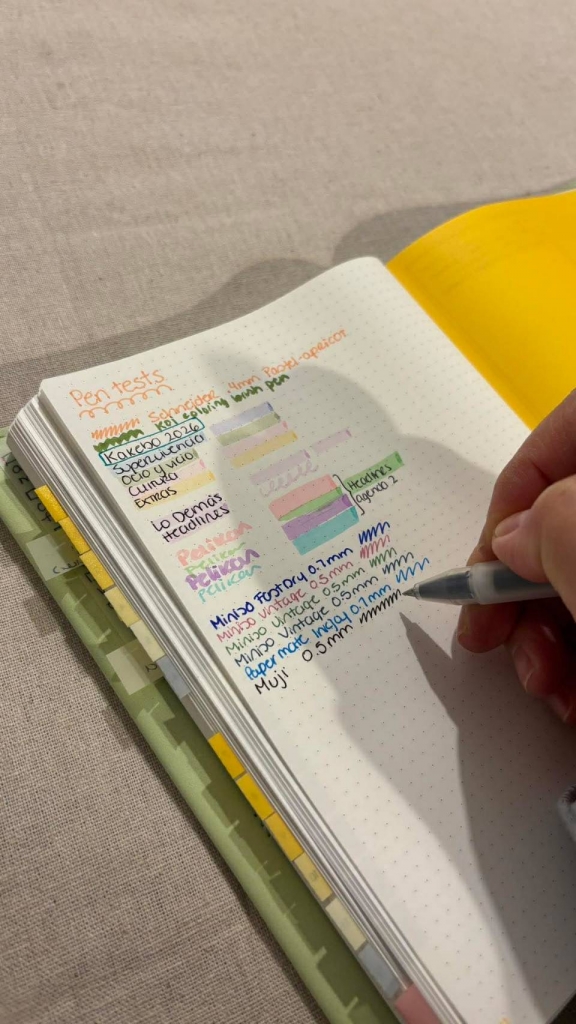 Pen tests
Schneider .4mm Pastel-apricot
Koi coloring brush pen
Kakebo 2026
Supervivencia
Ocio y vicio
Cultura
Extras
Lo Demás
Headlines
Headlines
agenda 2
Pelikan
Pelikan
Pelikan
Pelikan
Miniso Factory 0.7mm
Miniso Vintage 0.5mm
Miniso Vintage 0.5mm
Miniso Vintage 0.5mm
Papermate Inkjoy 0.7mm
Muji 0.5mm